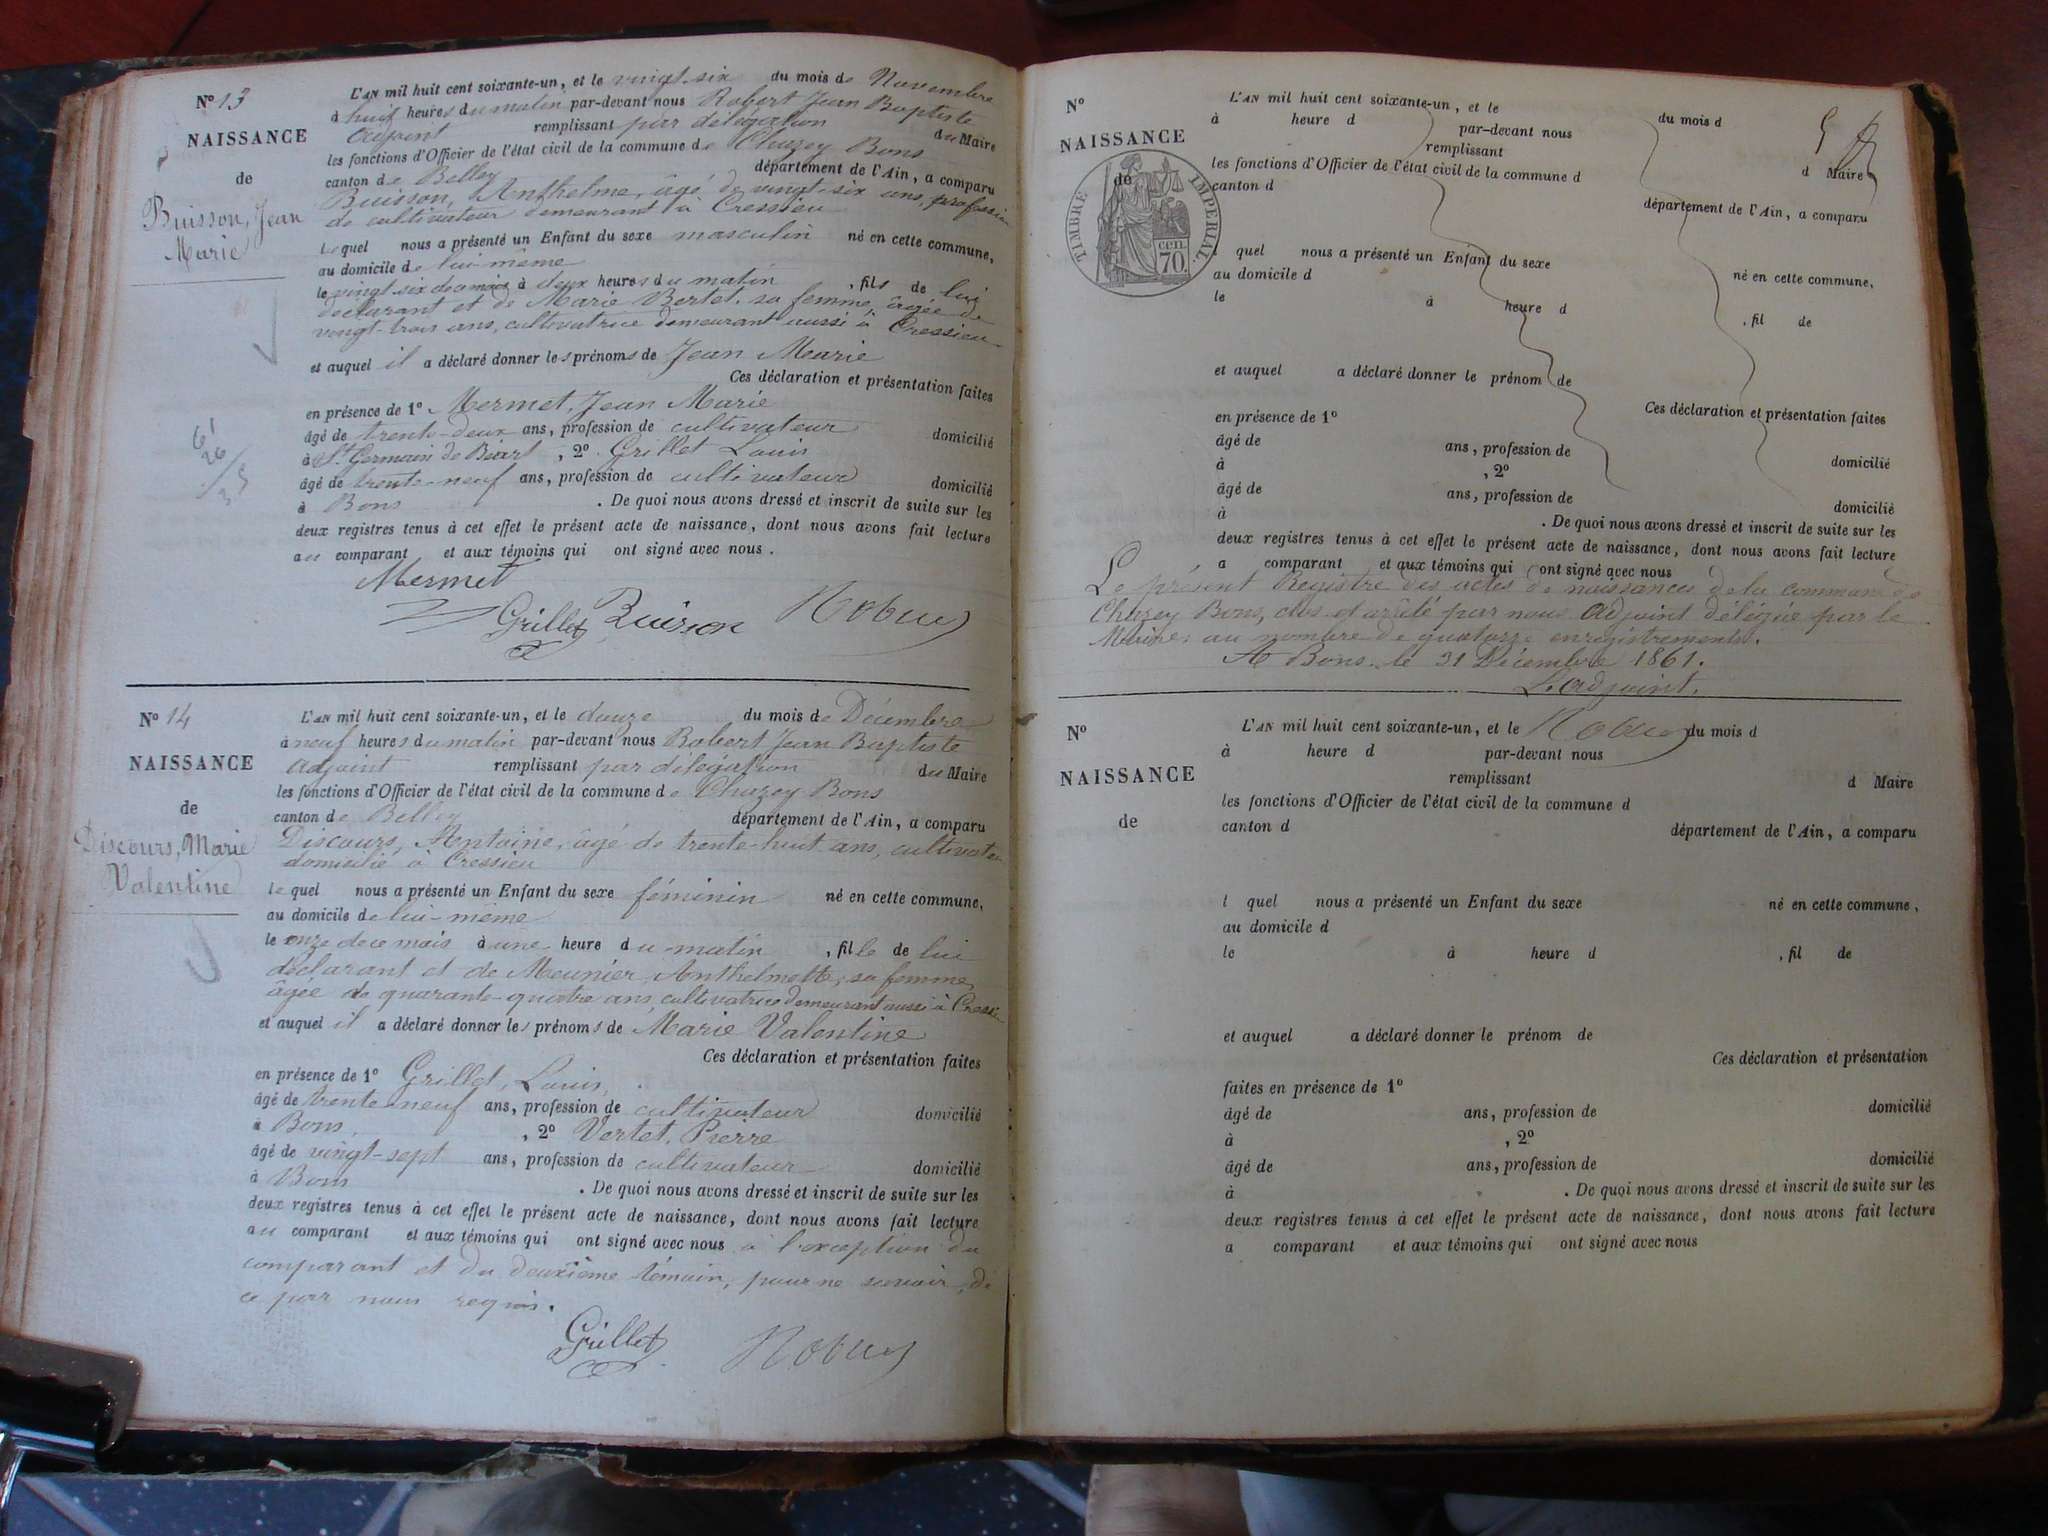 N° 13
NAISSANCE
de
Buisson, Jean
Marie
L'AN mil huit cent soixante-un, et le vingt-six du mois de Novembre
à huit heures du matin par-devant nous Robert Jean Baptiste
adjoint remplissant par délégation du Maire
les fonctions d'Officier de l'état civil de la commune de Chazey Bons
canton de Belley département de l'Ain, a comparu
Buisson, Anthelme, âgé de vingt-six ans, profession
de cultivateur demeurant à Cressieu
lequel nous a présenté un Enfant du sexe masculin né en cette commune,
au domicile de lui même
le vingt six de ce mois à deux heures du matin, fils de lui
déclarant et de Marie Bertet, sa femme, âgée de
vingt-trois ans, cultivatrice demeurant aussi à Cressieu
et auquel il a déclaré donner les prénoms de Jean Marie
Ces déclaration et présentation faites
en présence de 1° Mermet, Jean Marie
âgé de trente-deux ans, profession de cultivateur domicilié
à St Germain de , 2° Grillet Louis
âgé de trente-neuf ans, profession de cultivateur domicilié
à Bons . De quoi nous avons dressé et inscrit de suite sur les
deux registres tenus à cet effet le présent acte de naissance, dont nous avons fait lecture
au comparant et aux témoins qui ont signé avec nous.
Mermet
Grillet Buisson
N° 14
NAISSANCE
de
Discours, Marie
Valentine
L'AN mil huit cent soixante-un, et le douze du mois de Décembre
à neuf heures du matin par-devant nous Robert Jean Baptiste
adjoint remplissant par délégation du Maire
les fonctions d'Officier de l'état civil de la commune de Chazey Bons
canton de Belley département de l'Ain, a comparu
Discours, Antoine, âgé de trente-huit ans, cultivateur
domicilié à Cressieu
lequel nous a présenté un Enfant du sexe féminin né en cette commune,
au domicile de lui-même
le onze de ce mois à une heure du matin, fille de lui
déclarant et de Meunier, Anthelmette, sa femme,
âgée de quarante-quatre ans, cultivatrice demeurant aussi à Cressieu
et auquel il a déclaré donner les prénoms de Marie Valentine
Ces déclaration et présentation faites
en présence de 1° Grillet, Louis,
âgé de trente-neuf ans, profession de cultivateur domicilié
à Bons, , 2° Vertet, Pierre
âgé de vingt-sept ans, profession de cultivateur domicilié
à Bons . De quoi nous avons dressé et inscrit de suite sur les
deux registres tenus à cet effet le présent acte de naissance, dont nous avons fait lecture
au comparant et aux témoins qui ont signé avec nous à l'exception du
comparant et du deuxième témoin, pour ne savoir, de
ce par nous requis.
Grillet
N°
NAISSANCE
de
TIMBRE IMPERIAL.
cen. 70.
L'AN mil huit cent soixante-un, et le du mois d
à heure d par-devant nous
remplissant d Maire
les fonctions d'Officier de l'état civil de la commune d
canton d département de l'Ain, a comparu
l quel nous a présenté un Enfant du sexe né en cette commune,
au domicile d
le à heure d , fil de
et auquel a déclaré donner le prénom de
Ces déclaration et présentation faites
en présence de 1°
âgé de ans, profession de domicilié
à , 2°
âgé de ans, profession de domicilié
à . De quoi nous avons dressé et inscrit de suite sur les
deux registres tenus à cet effet le présent acte de naissance, dont nous avons fait lecture
a comparant et aux témoins qui ont signé avec nous
Le présent Registre des actes de naissances de la commune de
Chazey Bons, clos et arrêté par nous adjoint délégué par le
Maire, au nombre de quatorze enregistrements.
A Bons, le 31 Décembre 1861.
L'adjoint,
N°
NAISSANCE
de
L'AN mil huit cent soixante-un, et le du mois d
à heure d par-devant nous
remplissant d Maire
les fonctions d'Officier de l'état civil de la commune d
canton d département de l'Ain, a comparu
l quel nous a présenté un Enfant du sexe né en cette commune,
au domicile d
le à heure d , fil de
et auquel a déclaré donner le prénom de
Ces déclaration et présentation
faites en présence de 1°
âgé de ans, profession de domicilié
à , 2°
âgé de ans, profession de domicilié
à . De quoi nous avons dressé et inscrit de suite sur les
deux registres tenus à cet effet le présent acte de naissance, dont nous avons fait lecture
a comparant et aux témoins qui ont signé avec nous